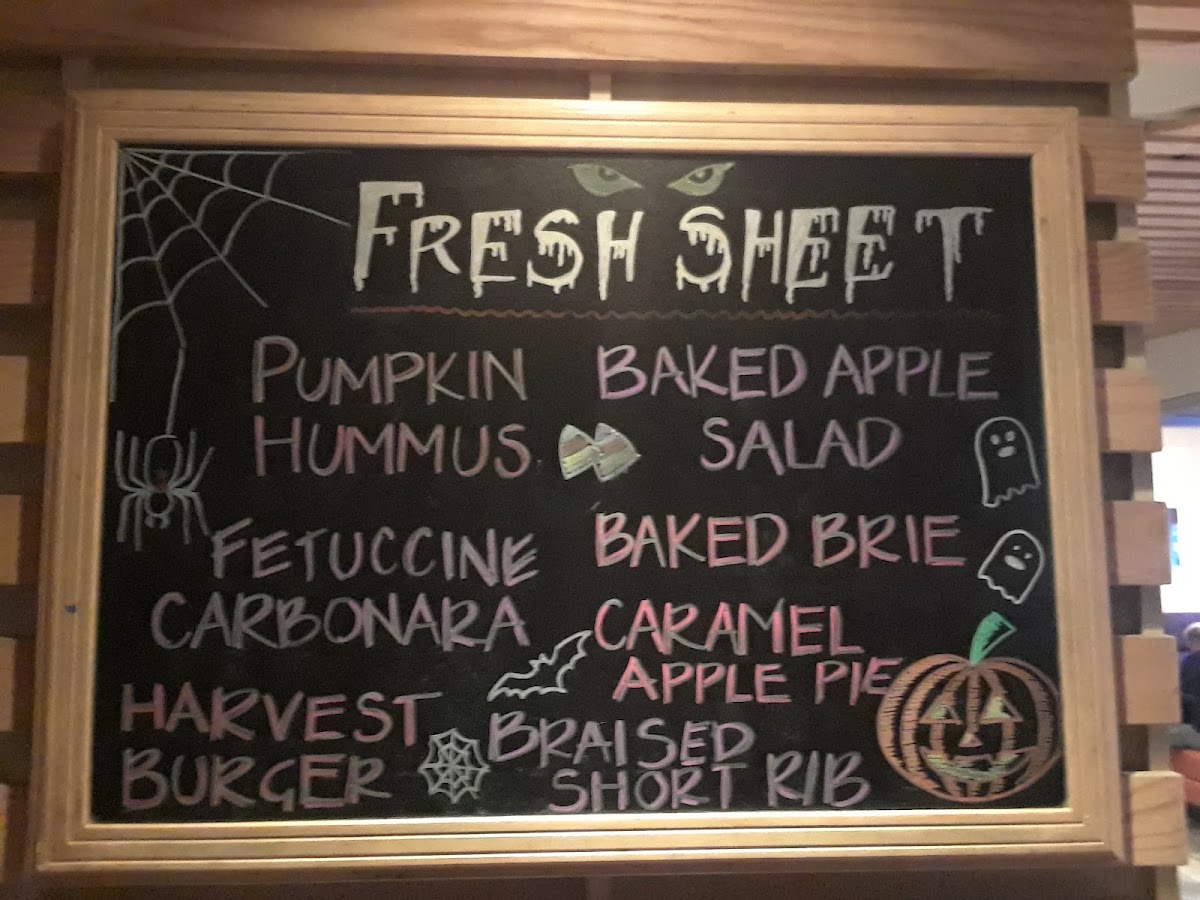 FRESH SHEET
PUMPKIN
HUMMUS
BAKED APPLE
SALAD
FETUCCINE
CARBONARA
BAKED BRIE
CARAMEL
APPLE PIE
HARVEST
BURGER
BRAISED
SHORT RIB